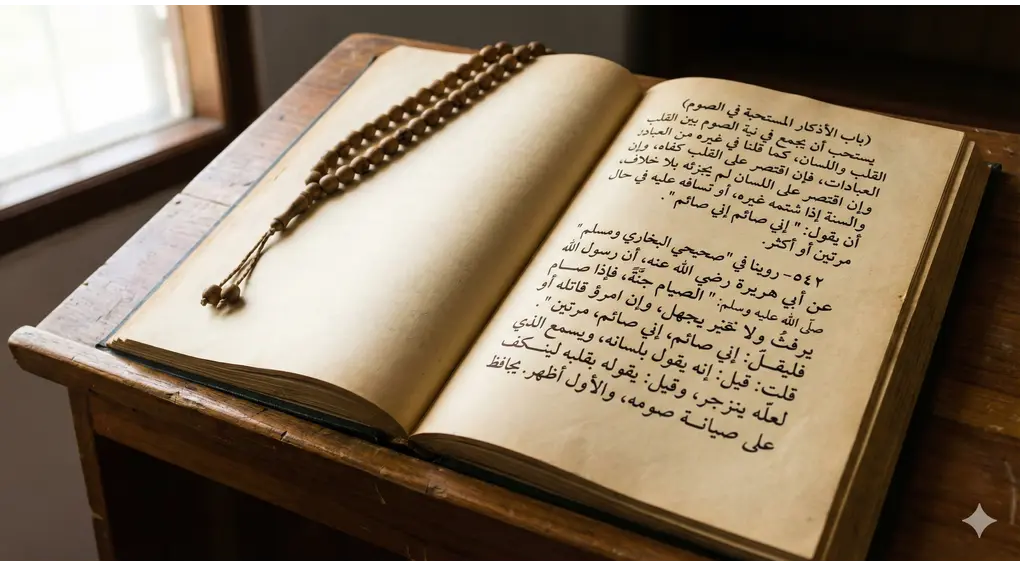 (باب الأذكار المستحبة في الصوم)
يستحب أن يجمع في نية الصوم بين القلب
القلب واللسان، كما قلنا في غيره من العبادر
العبادات، فإن اقتصر على القلب كفاه، وإن
وإن اقتصر على اللسان لم يجزئه بلا خلاف،
والسنة إذا شتمه غيره، أو تسافه عليه في حال
أن يقول: "إني صائم إني صائم".
مرتين أو أكثر.
٥٤٢- روينا في "صحيحي البخاري ومسلم"
عن أبي هريرة رضي الله عنه، أن رسول الله
صلّى الله عليه وسلم: "الصيام جنَّةٌ، فإذا صـام
يرفثُ ولا يجهل، وإن امرؤ قاتله أو
فليقلّ: إني صائم، إني صائم، مرتين".
قلت: قيل: إنه يقول بلسانه، ويسمع الذي
لعلّه ينزجر، وقيل: يقوله بقلبه لينـكف
على صيانـة صومه، والأول أظهر. يحافظ